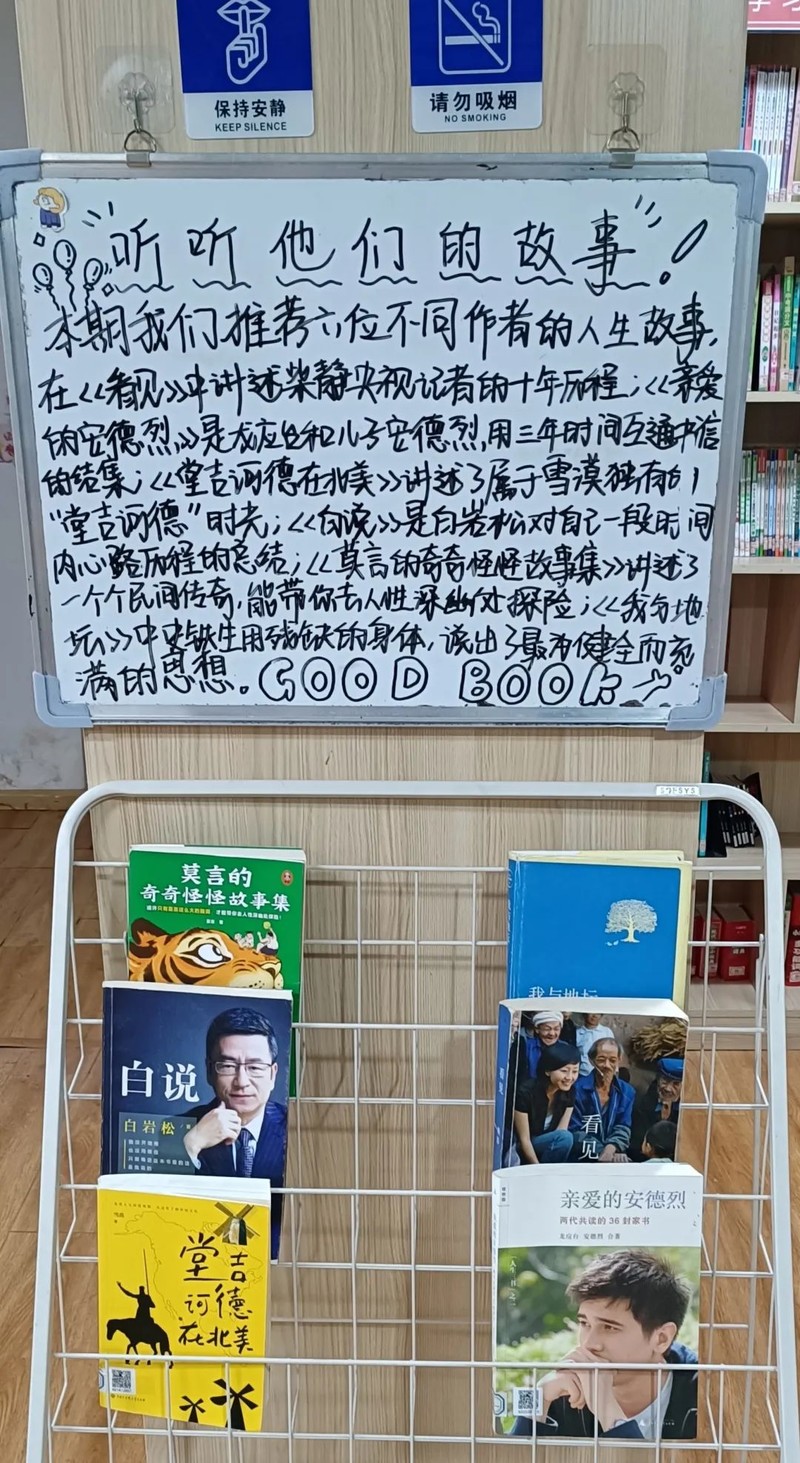 保持安静
KEEP SILENCE
请勿吸烟
NO SMOKING
听听他们的故事!
本期我们推荐六位不同作者的人生故事,
在《看见》中讲述柴静央视记者的十年历程;《亲爱
的安德烈》是龙应台和儿子安德烈用三年时间互通书信
的结集;《堂吉诃德在北美》讲述了属于雪漠独有的
“堂吉诃德”时光;《白说》是白岩松对自己一段时间
内心路历程的总结;《莫言的奇奇怪怪故事集》讲述了
一个个民间传奇,能带你去人性深幽处探险;《我与地
坛》中史铁生用残缺的身体,说出了最为健全而充
满的思想。GOOD BOOK
莫言的
奇奇怪怪故事集
我与地坛
白说
白岩松
看见
看见
亲爱的安德烈
两代共读的36封家书
龙应台 安德烈 合著
堂吉
诃德
在北美